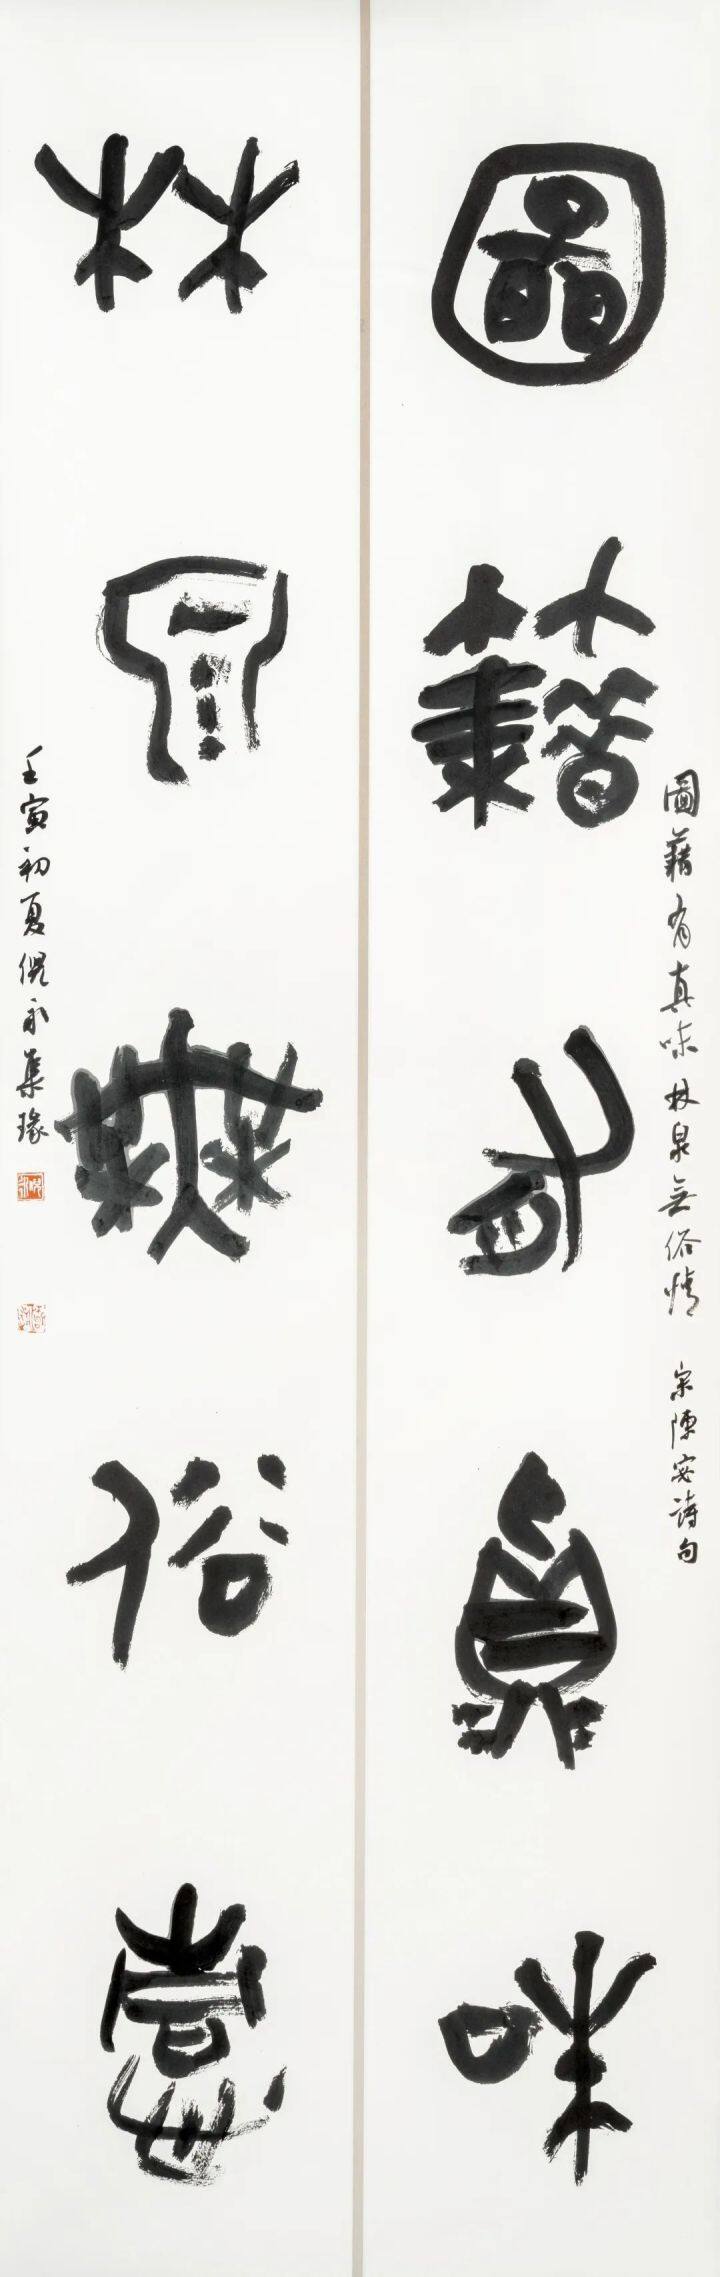 圖籍有真味
圖籍有真味林泉無俗情 宋陳宓詩句
林泉無俗情
壬寅初夏倪永集琭